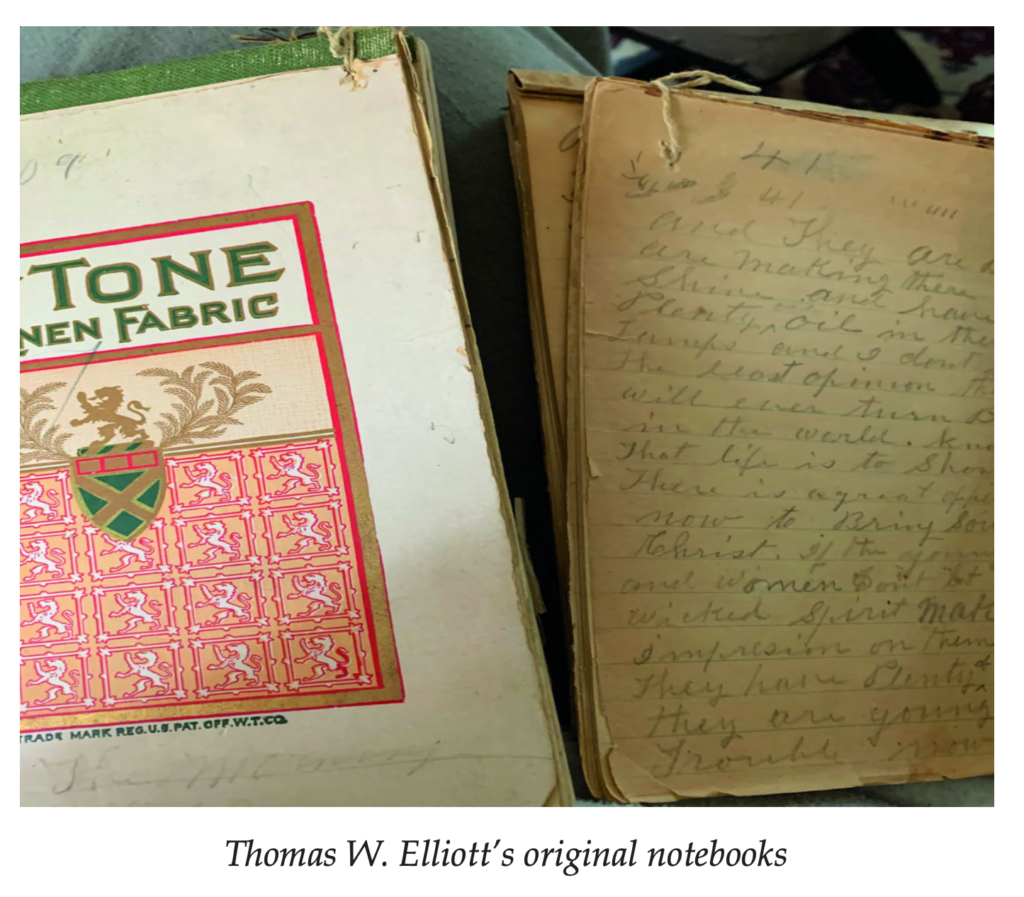 09
TONE
NEN FABRIC
TRADE MARK REG.U.S.PAT. OFF.W.T.CO
41
41
and They are
are making there
Shine and have
Plenty, Oil in the
Lamps and I dont
the least opinion th
will ever turn B
in the world. Kno
That life is to Shor
There is a great oppe
now to Bring Sou
Christ. if the youn
and women Don't Let
wicked Spirit Mak
impresion on them
They have Plenty of
they are young
Trouble now
Thomas W. Elliott's original notebooks